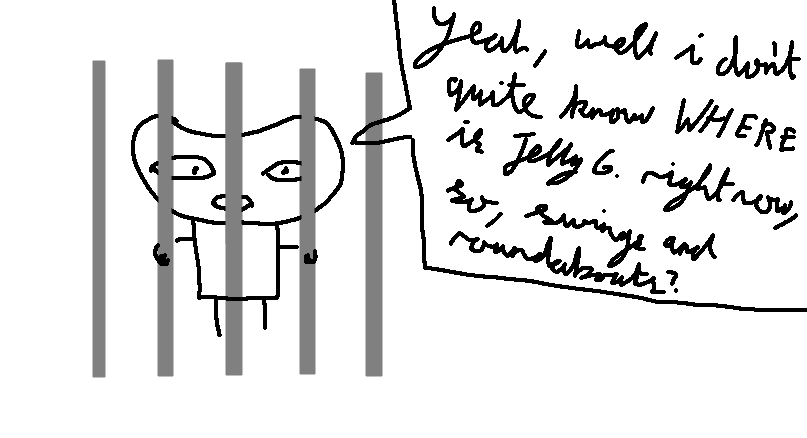 Yeah, well i don't
quite know WHERE
is Jelly G. right now,
so, swings and
roundabouts?